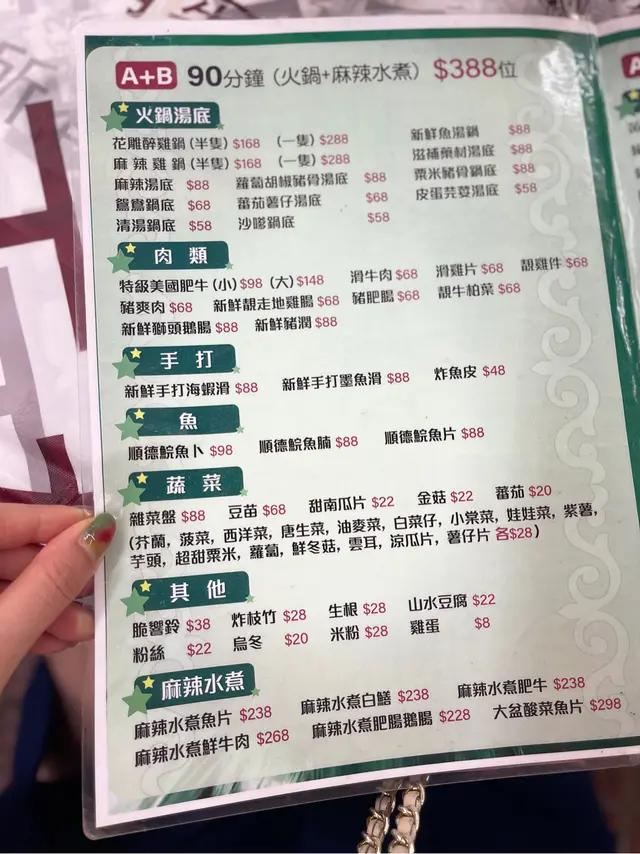 A+B 90分鐘 (火鍋+麻辣水煮) $388位
火鍋湯底
花雕醉雞鍋 (半隻) $168 (一隻) $288 新鮮魚湯鍋 $88
麻辣雞鍋 (半隻) $168 (一隻) $288 滋補藥材湯底 $88
麻辣湯底 $88 蘿蔔胡椒豬骨湯底 $88 粟米豬骨鍋底 $88
鴛鴦鍋底 $68 蕃茄薯仔湯底 $68 皮蛋芫荽湯底 $58
清湯鍋底 $58 沙嗲鍋底 $58
肉類
特級美國肥牛 (小) $98 (大) $148 滑牛肉 $68 滑雞片 $68 靚雞件 $68
豬爽肉 $68 新鮮靚走地雞腸 $68 豬肥腸 $68 靚牛柏葉 $68
新鮮獅頭鵝腸 $88 新鮮豬潤 $88
手打
新鮮手打海蝦滑 $88 新鮮手打墨魚滑 $88 炸魚皮 $48
魚
順德鯇魚卜 $98 順德鯇魚腩 $88 順德鯇魚片 $88
蔬菜
雜菜盤 $88 豆苗 $68 甜南瓜片 $22 金菇 $22 蕃茄 $20
(芥蘭，菠菜，西洋菜，唐生菜，油麥菜，白菜仔，小棠菜，娃娃菜，紫薯，
芋頭，超甜粟米，蘿蔔，鮮冬菇，雲耳，涼瓜片，薯仔片 各$28)
其他
脆響鈴 $38 炸枝竹 $28 生根 $28 山水豆腐 $22
粉絲 $22 烏冬 $20 米粉 $28 雞蛋 $8
麻辣水煮
麻辣水煮魚片 $238 麻辣水煮白鱔 $238 麻辣水煮肥牛 $238
麻辣水煮鮮牛肉 $268 麻辣水煮肥腸鵝腸 $228 大盆酸菜魚片 $298